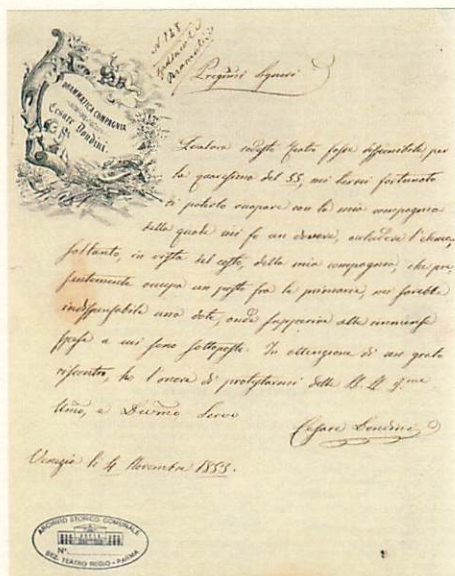 N. 128
DRAMMATICA COMPAGNIA
Cesare Dondini
Pregmi Signori
Qualora codesto Teatro fosse disponibile per
la quaresima del 55, mi terrei fortunato
di poterlo occupare con la mia compagnia
della quale mi fo un dovere, l'elenco
soltanto, in vista del costo, della mia compagnia, che pre-
sentemente occupa un posto fra le primarie, mi sarebbe
indispensabile una dote, onde supperire alle immense
spese a cui sono sottoposto. In attenzione di un grato
riscontro, ho l'onore di protestarmi delle
Umo, e Devmo Servo
Cesare Dondini
Venezia li 4 Novembre 1853.
ARCHIVIO STORICO COMUNALE
N°
SEZ. TEATRO REGIO - PARMA